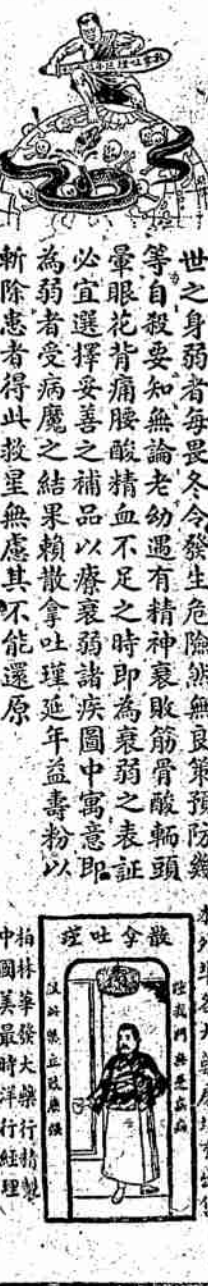 散拿吐瑾延年益壽粉
世之身弱者每畏冬令發生危險然無良策預防幾
等自殺要知無論老幼遇有精神衰敗筋骨酸輭頭
暈眼花背痛腰酸精血不足之時即為衰弱之表証
必宜選擇妥善之補品以療衰弱諸疾圖中寓意即
為弱者受病魔之結果賴散拿吐瑾延年益壽粉以
斬除患者得此救星無慮其不能還原
散拿吐瑾
柏林華發大藥行精製
中國美最時洋行經理